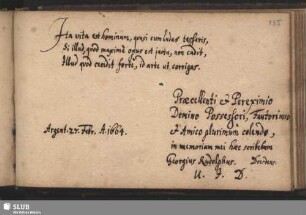 135
Ita vita est hominum, quasi cum ludas tesseris,
Si illud, quod maximè opus est jactu, non cadit,
Illud quod cecidit fortè, id arte ut corrigas.
Præcellenti & Pereximio
Domino Possessori, Fautori
& Amico plurimum colendo,
in memoriam mei hæc scribebam
Georgius Rudolphus
U. J. D.
Argent. 27. Febr. A. 1664.
SLUB